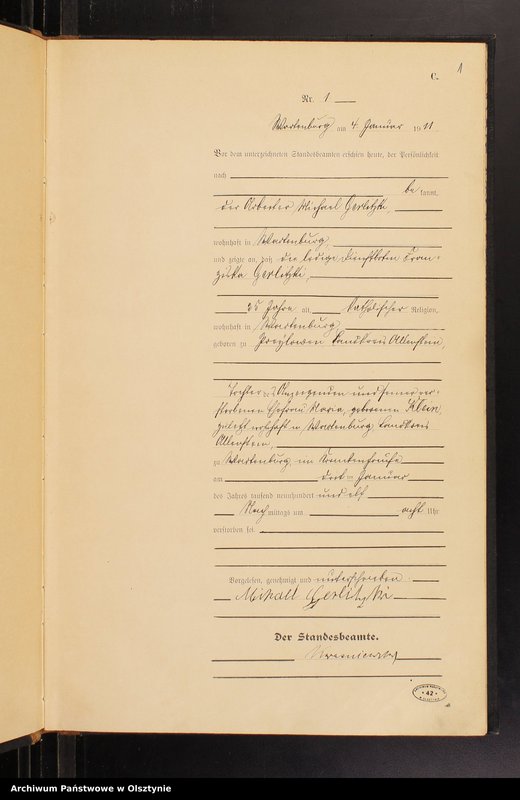 1
C.
Nr. 1
Wartenburg am 4 Januar 1911.
Vor dem unterzeichneten Standesbeamten erschien heute, der Persönlichkeit
nach
be kannt,
der Arbeiter Michael Gerlitzki,
wohnhaft in Wartenburg,
und zeigte an, daß die ledige Dienstboten Fran-
ziska Gerlitzki,
35 Jahre alt, katholischer Religion,
wohnhaft in Wartenburg,
geboren zu Preylowen, Landkreis Allenstein,
Tochter des Anzeigenden und seiner ver-
storbenen Ehefrau Maria, geborenen Klein,
zuletzt wohnhaft in Wartenburg, Landkreis
Allenstein,
zu Wartenburg, im Krankenhause
am Januar
des Jahres tausend neunhundert und elf
Nach mittags um acht Uhr
verstorben sei.
Vorgelesen, genehmigt und unterschrieben
Der Standesbeamte.
42
Archiwum Państwowe w Olsztynie